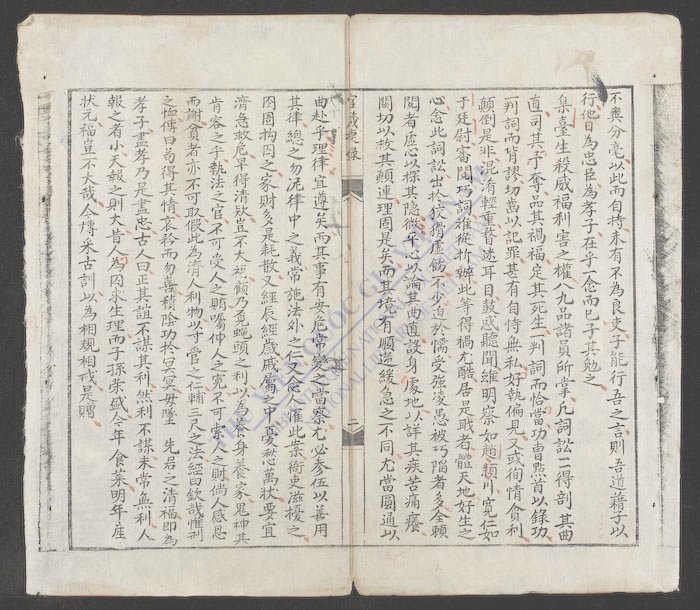 不爽分毫以此而自持未有不為良吏子能行吾之言則吾道藉子以
行他日為忠臣為孝子在乎一念而已子其勉之
集臺生殺威福利害之權八九品諸員所掌凡詞訟一得剖其曲
直司其予奪品其禍福定其死生一判詞而恰當功曹點首以錄功
一判詞而背謬切齒以記罪甚有自恃無私好執偏見又或徇情貪利
顛倒是非混淆輕重瞀迷耳目鼓惑聽聞維明察如趙潁川寬仁如
于廷尉審閱巧詞难從折辦此等得禍尤酷居是戢者體天地好生之
心念此詞訟出於狡猾虛飭不少迫於懦受強凌愚被巧陷者多全賴
閱者虛心以探其隱微平心以論其曲直設身處地以詳其疾苦痛癢
關切以救其顛連理固是矣而其境有順逆緩急之不同尤當圓通以
官箴吏錄
二
曲赴乎理律宜遵矣而其事有安危常變之當察尤必参伍以善用
其律總之勿泥律中之義常施法外之仁又念人罹此案衙吏滋擾之
囹圄拘囚之家財多是耗散又經辰經歲戚屬之中憂愁萬狀要宜
濟急救危早得清欵豈不大視顧乃䖝蝇頭之利以為養身養家鬼神其
肯容之乎執法之官不可受人之賄嘱伸人之冤不可索人之財倘人感恩
而謝貧者亦不可取假此為濟人利物以寸管之仁輔三尺之法經曰欽哉惟刑
之恤傳曰茍得其情哀矜而勿喜積陰功於冥冥毋墜 先君之清福即為
孝子盡孝乃是盡忠古人曰正其誼不謀其利然利不謀未常無利人
報之者小天報之則大昔人為囚求生理而子孫榮盛今年食菜明年産
状元福豈不大哉今慱采古訓以為相規相戒是贈